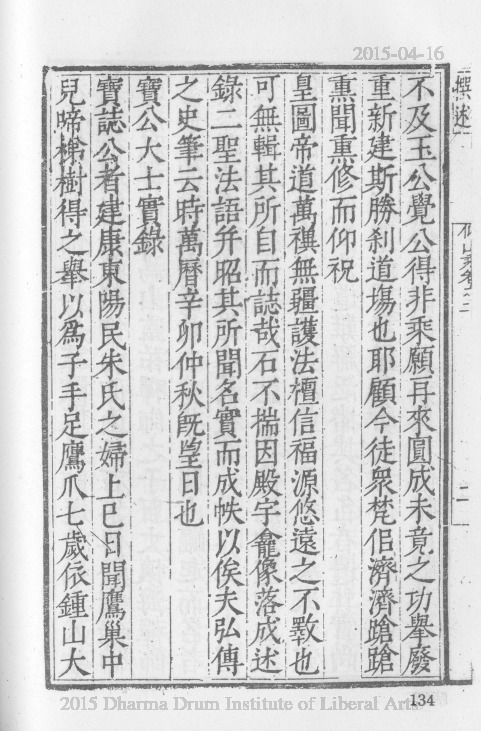 2015-04-16
撰述
不及玉公覺公得非乘願再來圓成未竟之功舉廢
重新建斯勝刹道塲也耶顧今徒衆梵侶濟濟蹌蹌
熏聞熏修而仰祝
皇圖帝道萬禩無疆護法檀信福源悠遠之不斁也
可無輯其所自而誌哉石不揣因殿宇龕像落成述
錄二聖法語并昭其所聞名實而成帙以俟夫弘傳
之史筆云時萬曆辛卯仲秋旣朢日也
寶公大士實錄
寶誌公者建康東陽民朱氏之婦上巳日聞鷹巢中
兒啼梯樹得之舉以爲子手足鷹爪七歲依鍾山大
二
134
2015 Dharma Drum Institute of Liberal Arts